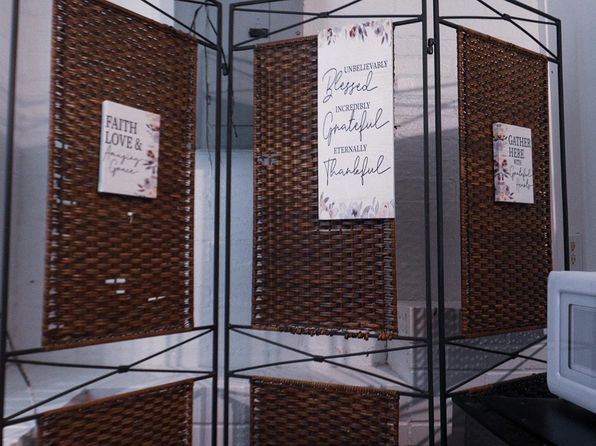 FAITH
LOVE &
Amazing
Grace
UNBELIEVABLY
Blessed
INCREDIBLY
Grateful
ETERNALLY
Thankful
GATHER
HERE
WITH
Grateful
Hearts